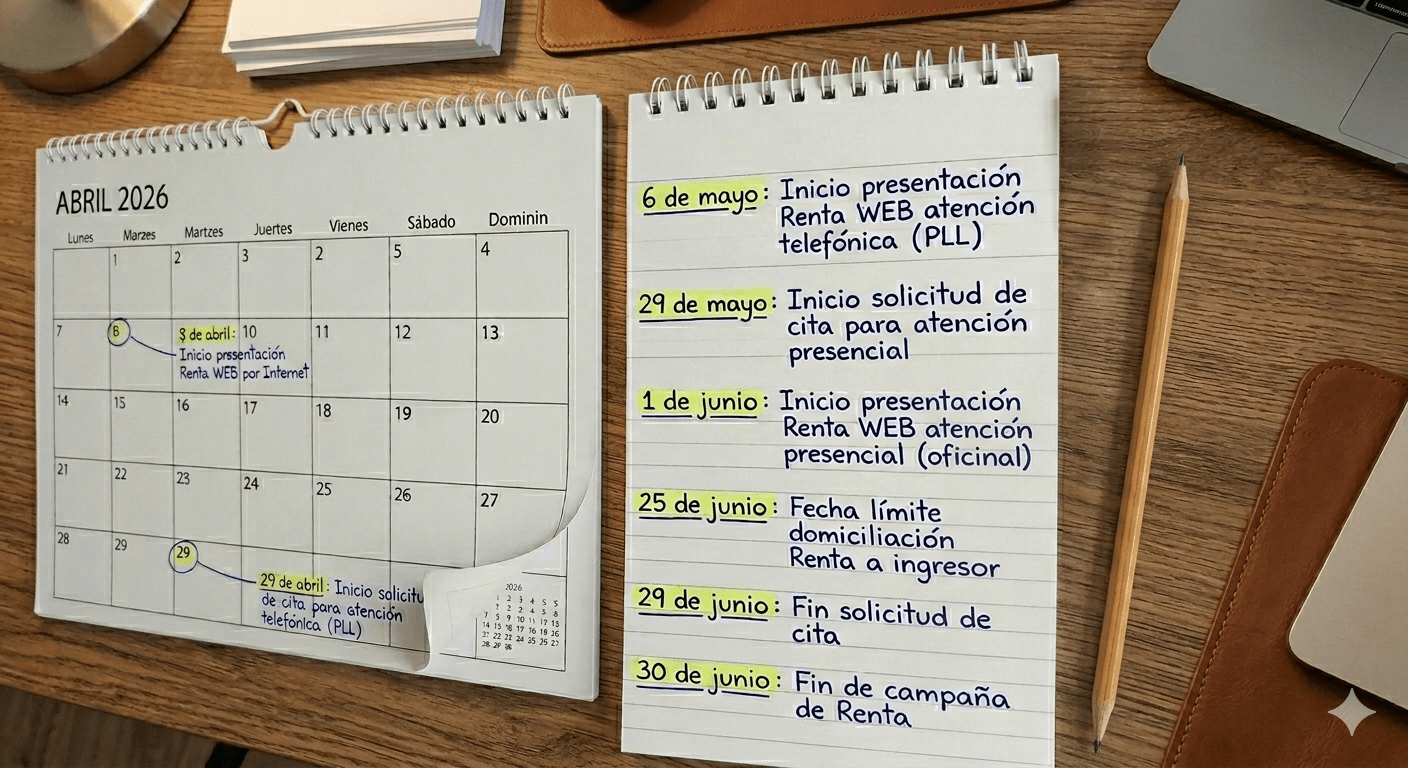 ABRIL 2026
Lunes Marzes Martzes Juertes Vienes Sàbado Dominin
1 2 3 2 5 4
7 8 10 11 12 13
8 de abril:
Inicio prssentación
Renta WEB por Internet
14 15 16 17 18 19 20
21 22 23 24 25 26 27
28 29 29
29 de abril: Inicio solicitu
de cita para atención
telefónica (PLL)
2026
6 de mayo: Inicio presentación
Renta WEB atención
telefónica (PLL)
29 de mayo: Inicio solicitud de
cita para atención
presencial
1 de junio: Inicio presentación
Renta WEB atención
presencial (oficinal)
25 de junio: Fecha límite
domiciliación
Renta a ingresor
29 de junio: Fin solicitud de
cita
30 de junio: Fin de campaña
de Renta